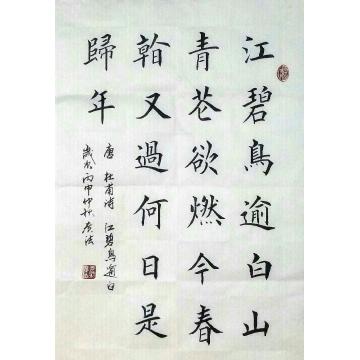 江碧鳥逾白山
青花欲燃今春
看又過何日是
歸年
唐 杜甫诗 江碧鳥逾白
歲次丙申仲秋